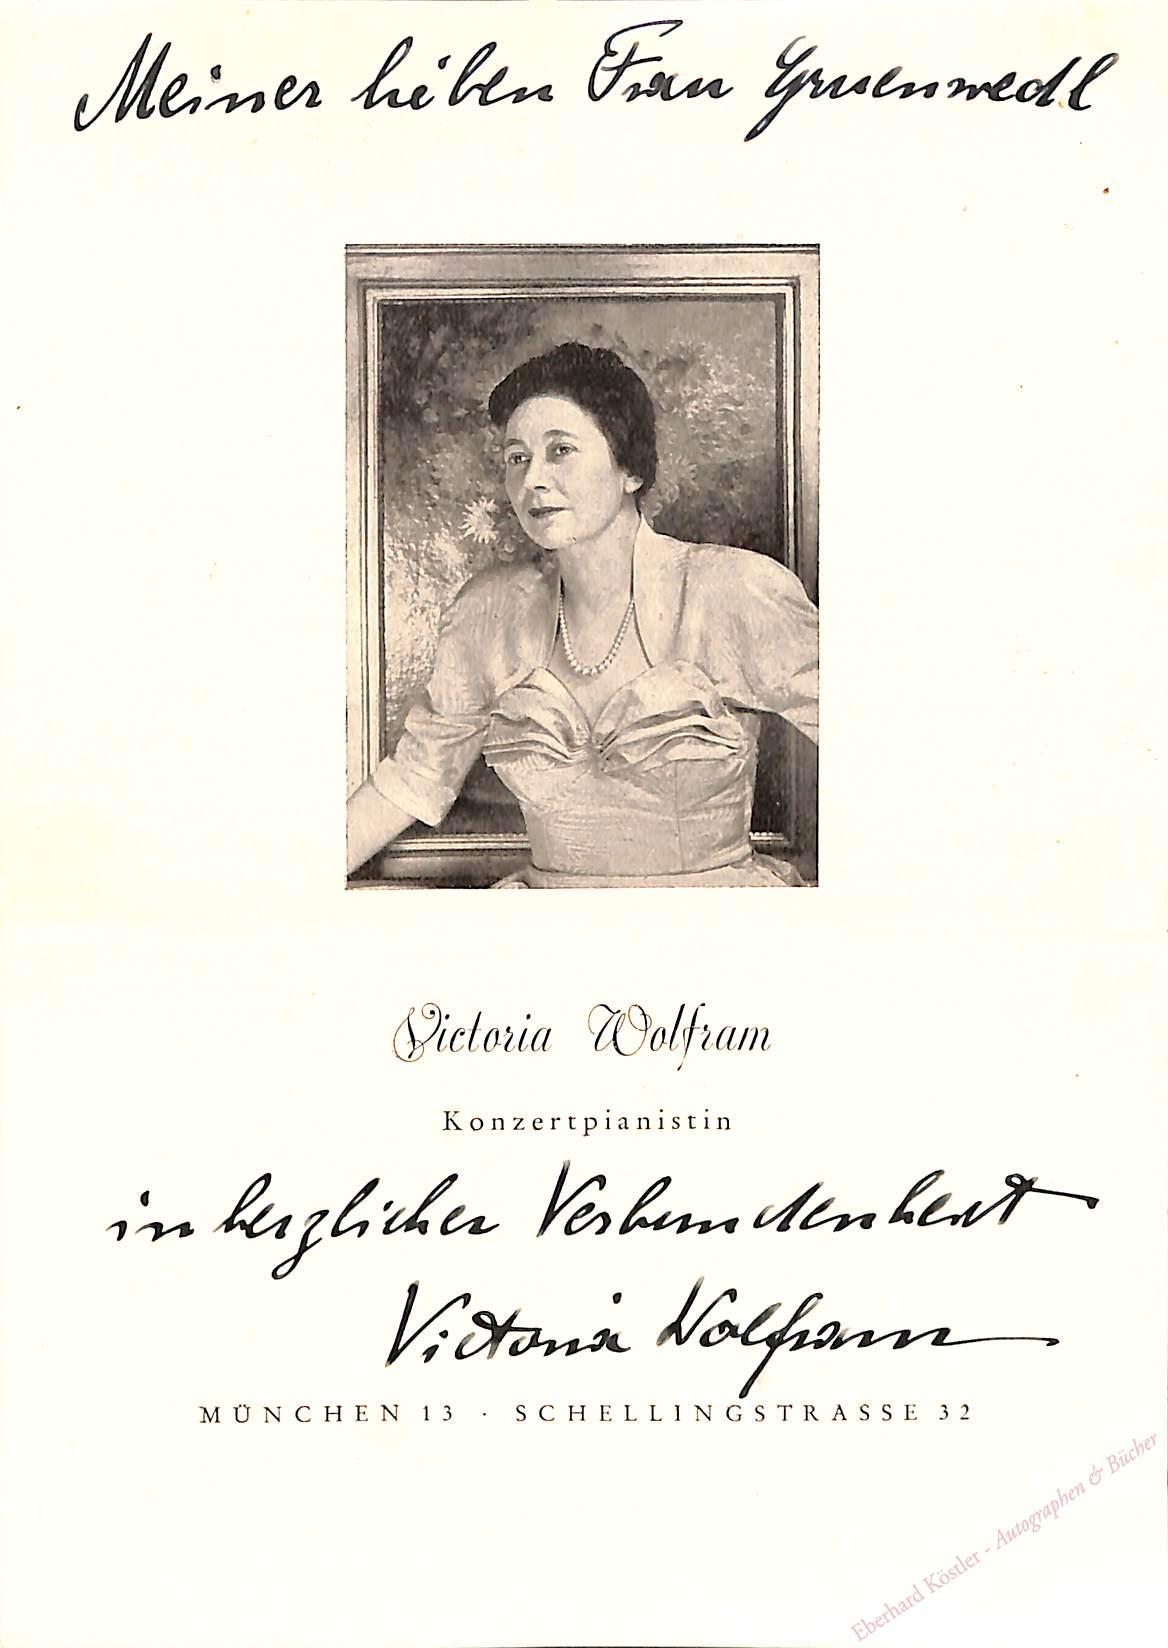 Meiner lieben Frau Gruenwedl
Victoria Wolfram
Konzertpianistin
in herzlicher Verbundenheit
Victoria Wolfram
MÜNCHEN 13 · SCHELLINGSTRASSE 32
Eberhard Köstler - Autographen & Bücher